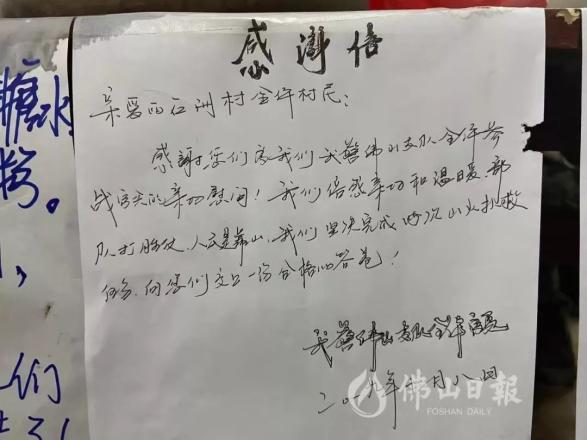 糖水
粥。
们
感谢信
亲爱的石洲村全体村民:
感谢您们为我们武警佛山支队全体参
战官兵的亲切慰问!我们倍感亲切和温暖,部
队打胜仗,人民是靠山,我们坚决完成此次山火扑救
任务,向您们交上一份合格的答卷!
武警佛山支队全体官兵
二〇一九年 月八日
佛山日報
FOSHAN DAILY